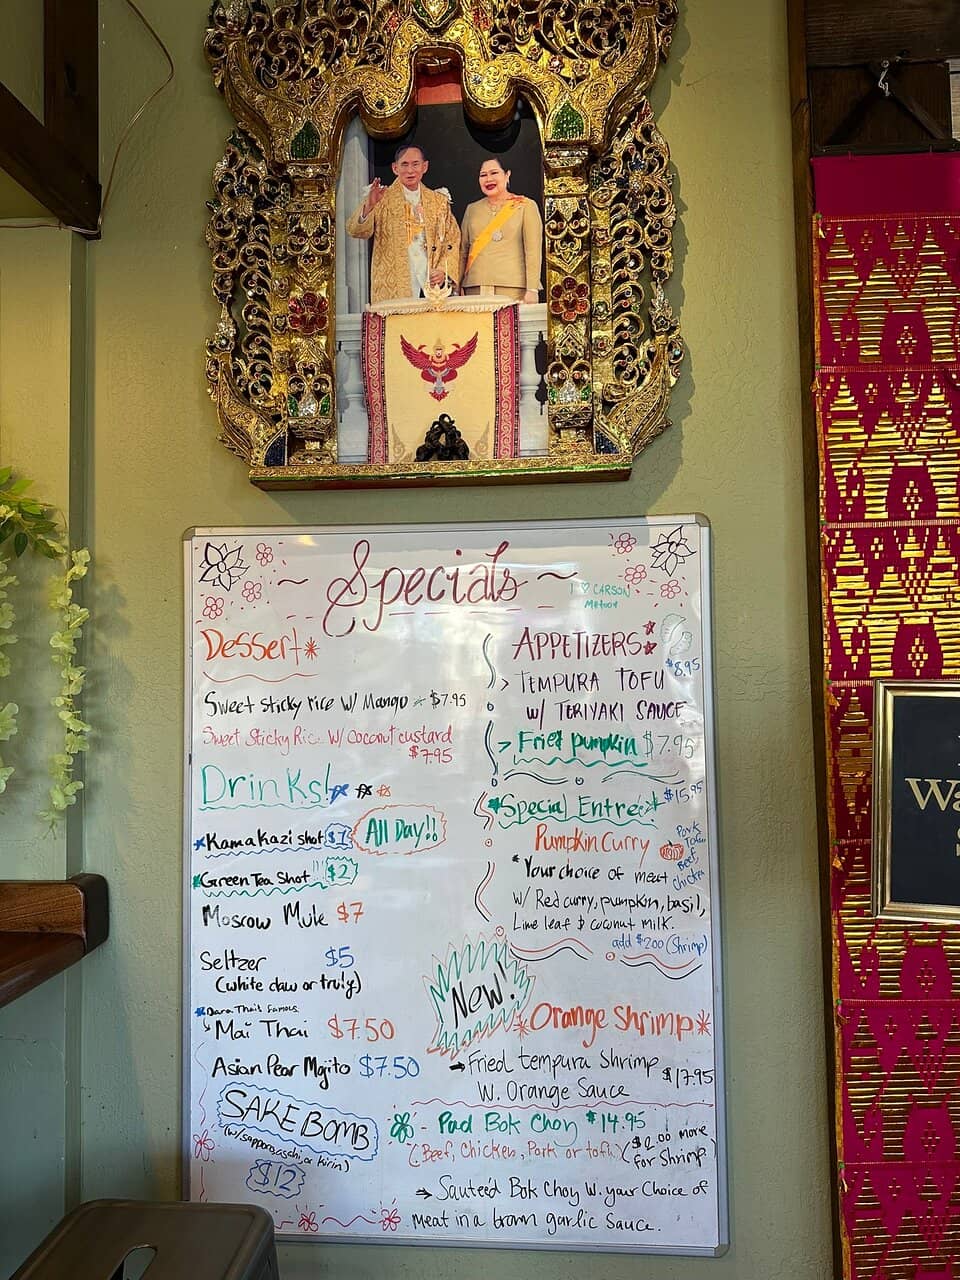 Specials
I ♡ CARSON
Dessert*
Sweet Sticky rice W/ Mango $7.95
Sweet Sticky Rice W/ Coconut custard
$7.95
Drinks!
*Kamakazi shot $1 All Day!!
*Green Tea Shot $2
Moscow Mule $7
Seltzer $5
(white claw or truly)
*Dara Thai's famous
Mai Thai $7.50
Asian Pear Mojito $7.50
SAKE BOMB
$12
APPETIZERS*
$8.95
> TEMPURA TOFU
W/ TERIYAKI SAUCE
> Fried pumpkin $7.95
*Special Entree* $15.95
Pumpkin Curry
Pork
Tofu
Beef,
chicken
*Your choice of meat
W/ Red curry, pumpkin, basil,
Lime leaf & coconut milk.
add $2.00 (Shrimp)
New!
*Orange Shrimp*
→ Fried tempura Shrimp $17.95
W. Orange Sauce
- Pad Bok Choy $14.95
(Beef, Chicken, Pork or tofu) ($2.00 more
for Shrimp)
→ Sauteed Bok Choy W. your Choice of
meat in a brown garlic sauce.
Wa